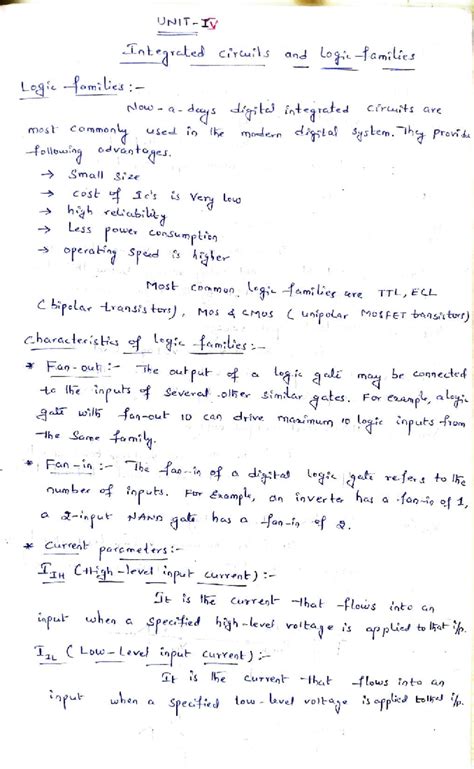 UNIT-IV
Integrated circuits and Logic-families
Logic families :-
Now-a-days digital integrated circuits are
most commonly used in the modern digital system. They provide
following advantages.
→ Small size
→ cost of Ic's is very low
→ high reliability
→ Less power consumption
→ operating speed is higher
Most common logic families are TTL, ECL
(bipolar transistors), MOS & CMOS (unipolar MOSFET transistors)
Characteristics of logic families :-
* Fan-out :- The output of a logic gate may be connected
to the inputs of several other similar gates. For example, a logic
gate with fan-out 10 can drive maximum 10 logic inputs from
the same family.
* Fan-in :- The fan-in of a digital logic gate refers to the
number of inputs. For Example, an inverter has a fan-in of 1,
a 2-input NAND gate has a fan-in of 2.
* Current parameters :-
I_IH (High-level input current) :-
It is the current that flows into an
input when a specified high-level voltage is applied to that i/p.
I_IL (Low-Level input current) :-
It is the current that flows into an
input when a specified low-level voltage is applied to that i/p.